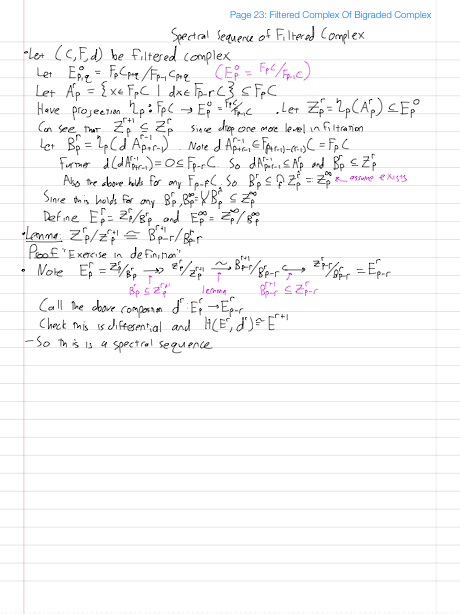 Page 23: Filtered Complex Of Bigraded Complex
Spectral Sequence of Filtered Complex
•Let (C,F,d) be filtered complex
Let E⁰_{p,q} = F_pC_{p+q}/F_{p-1}C_{p+q} (E⁰_p = F_pC/F_{p-1}C)
Let A^r_p = {x∈F_pC | dx∈F_{p-r}C} ⊆ F_pC
Have projection η_p: F_pC → E⁰_p = F_pC/F_{p-1}C. Let Z^r_p = η_p(A^r_p) ⊆ E⁰_p
Can see that Z^{r+1}_p ⊆ Z^r_p since drop one more level in filtration
Let B^r_p = η_p(d A^{r-1}_{p+r-1}). Note d A^{r-1}_{p+r-1} ⊆ F_{p+(r-1)-(r-1)}C = F_pC
Further d(dA^{r-1}_{p+r-1}) = 0 ⊆ F_{p-r}C. So dA^{r-1}_{p+r-1} ⊆ A^r_p and B^r_p ⊆ Z^r_p
Also the above holds for any F_{p-p}C. So B^r_p ⊆ ⋂ Z^r_p = Z^∞_p ← assume exists
Since this holds for any B^r_p, B^∞_p = ⋃ B^r_p ⊆ Z^∞_p
Define E^r_p = Z^r_p/B^r_p and E^∞_p = Z^∞_p/B^∞_p
•Lemma: Z^r_p/Z^{r+1}_p ≅ B^{r+1}_{p-r}/B^r_{p-r}
Proof: "Exercise in definition"
• Note E^r_p = Z^r_p/B^r_p ↠ Z^r_p/Z^{r+1}_p ⥲ B^{r+1}_{p-r}/B^r_{p-r} ↪ Z^r_{p-r}/B^r_{p-r} = E^r_{p-r}
B^r_p ⊆ Z^{r+1}_p lemma B^{r+1}_{p-r} ⊆ Z^r_{p-r}
Call the above composition d^r: E^r_p → E^r_{p-r}
Check this is differential and H(E^r, d^r) ≅ E^{r+1}
- So this is a spectral sequence